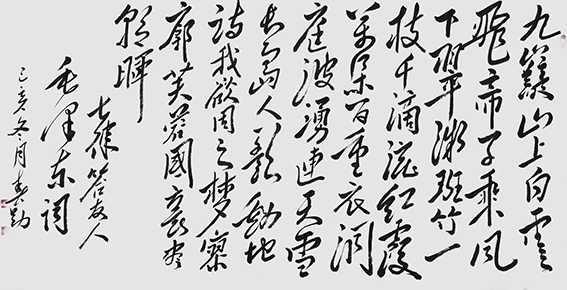 九嶷山上白雲
飛帝子乘風
下翠微斑竹一
枝千滴淚紅霞
萬朵百重衣洞
庭波湧連天雪
長島人歌動地
詩我欲因之夢寥
廓芙蓉國裏盡
朝暉
七律答友人
毛澤東詞
己亥冬月